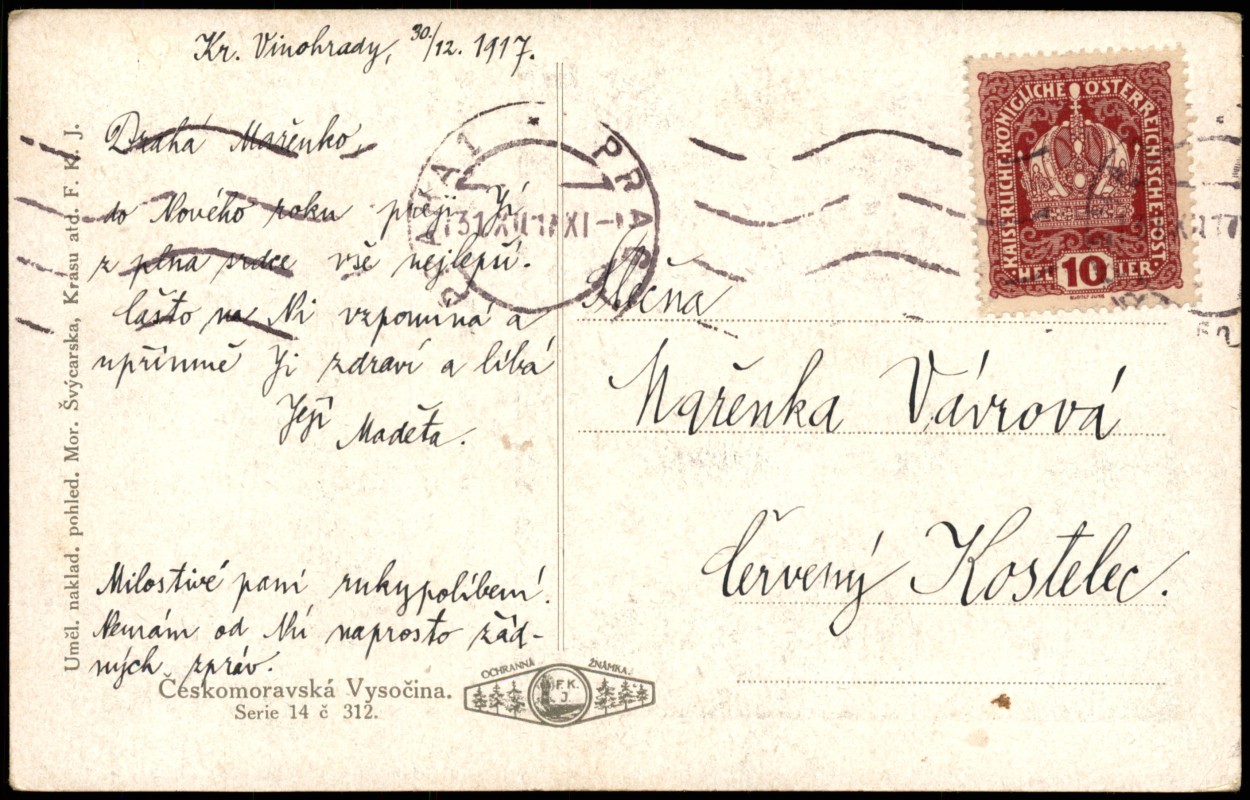 Kr. Vinohrady, 30/12. 1917.
Drahá Mařenko,
do Nového roku přeji Jí
z plna srdce vše nejlepší.
Často na Ni vzpomíná a
upřímně Ji zdraví a líbá
Její
Maděta.
Milostivé paní rukypolíbení.
Nemám od Ní naprosto žád-
ných zpráv.
Českomoravská Vysočina.
Serie 14 č 312.
Uměl. naklad. pohled. Mor. Švýcarska, Krasu atd. F. K. J.
OCHRANNÁ ZNÁMKA
F. K. J
PRAHA 1 * PRAG
31 XII 17 XI
KAISERLICHE·KÖNIGLICHE ÖSTERREICHISCHE·POST
HELLER
10
Slečna
Mařenka Vávrová
Červený Kostelec.